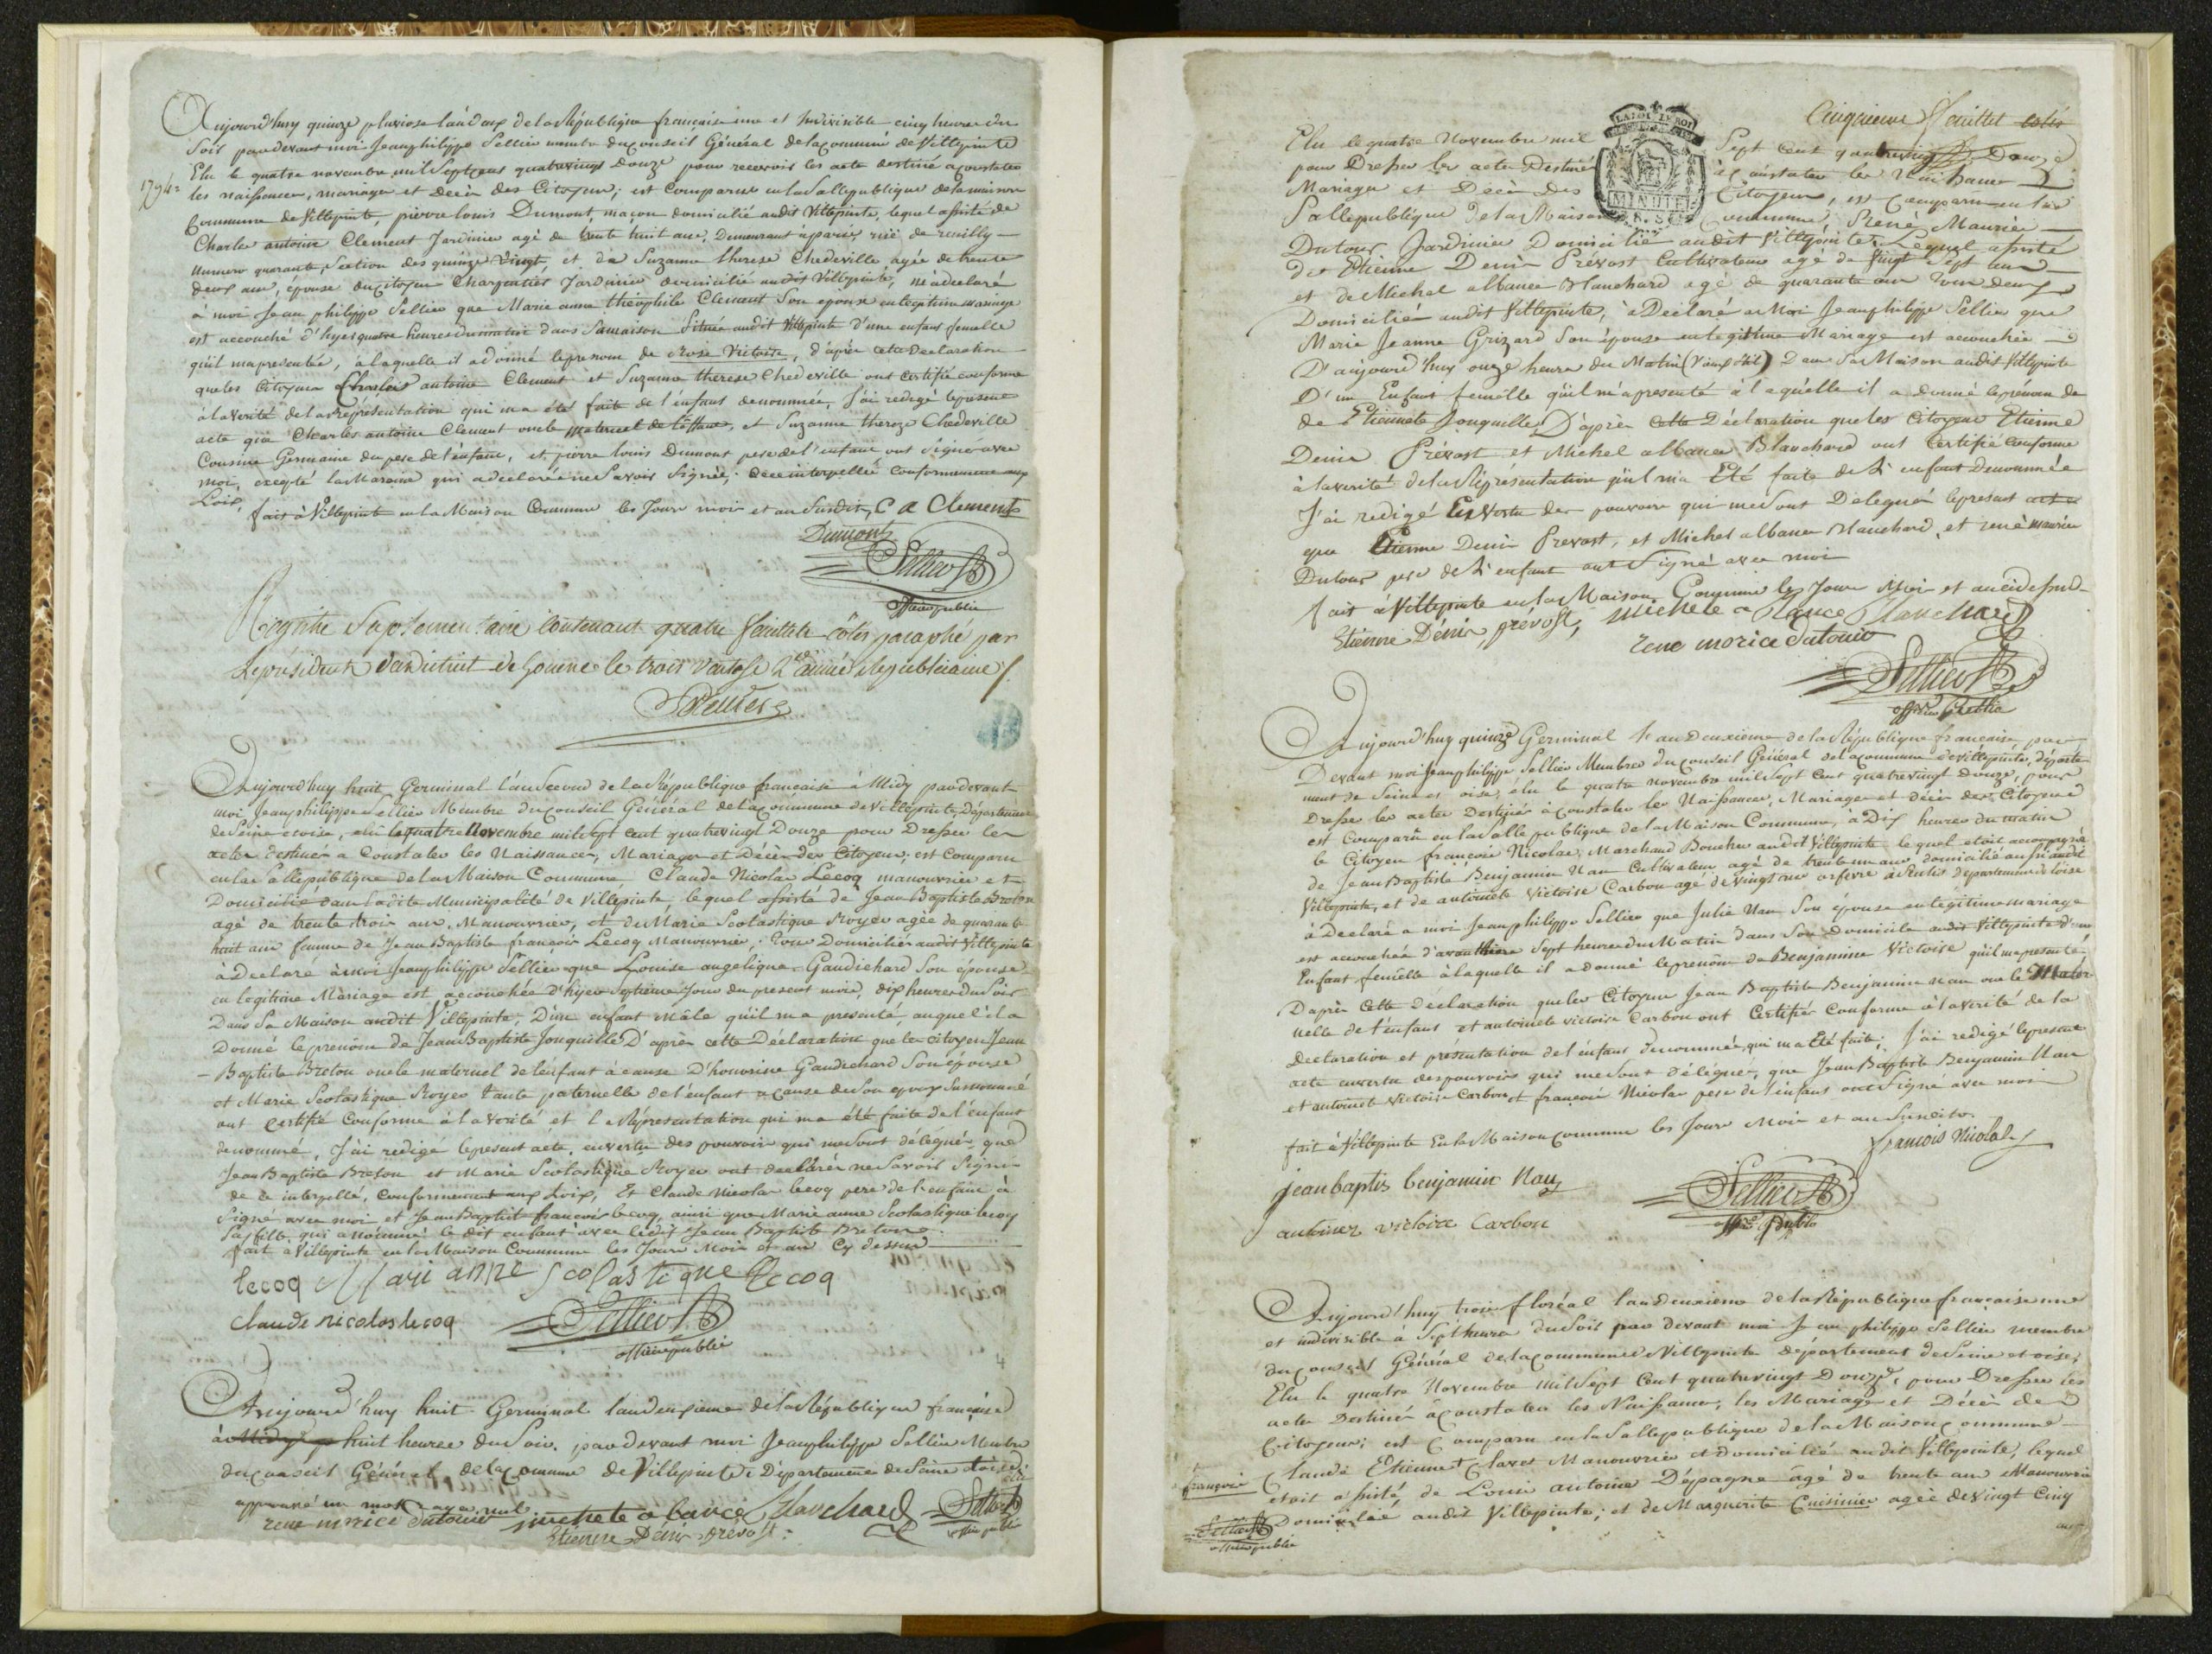 Aujourd'huy quinze pluviose l'an deux de la République française une et Indivisible cinq heures du
Soir pardevant moi Jean philippe Sellier membre du conseil Général de la commune de Villepinte
Elu le quatre novembre mil Sept cens quatrevingt Douze pour recevoir les acte destiné a constater
1794
les naissances, mariages et decès des Citoyens; est Comparue en la Salle publique de la maison
Commune de Villepinte, pierre louis Dumont, maçon domicilié audit Villepinte, lequel assisté de
Charles antoine Clement Jardinier agé de trente huit ans, Demeurant à paris, rüe de reuilly
Numero quarante, Section des quinze Vingt, et de Suzanne therese Chedeville agée de trente
deux ans, epouse du citoyen Charpentier Jardinier domicilié audit Villepinte, m'a declaré
à moi Jean philippe Sellier que Marie anne théophile Clement Son epouse en legitime mariage
est accouché d'hyer quatre heures du matin dans Sa maison Située audit Villepinte d'une enfant femelle
qu'il ma presentée, à laquelle il a donné le prenom de Rose Victoire, d'après cette Declaration
que les Citoyens Charles antoine Clement et Suzanne therese Chedeville ont certifié conforme
à la verité de la représentation qui m'a été faite de l'enfant denommée, J'ai redigé le présent
acte que Charles antoine Clement oncle maternel de l'enfant, et Suzanne thereze Chedeville
Cousine Germaine du pere de l'enfant, et pierre louis Dumont pere de l'enfant ont Signé avec
moi, excepté la Maraine qui a declaré ne Savoir Signée, de ce interpellée conformement aux
Loix,
fait à Villepinte en la Maison Commune les Jour mois et an Susdit, C A Clement
Dumont
Sellier
officier public
Registre Suplementaire contenant quatre feuillets cotés paraphé par
le président du district de Gonesse le trois Ventose 2e année Republicaine
Aujourd'huy huit Germinal l'an Second de la République française à Midy pardevant
moi Jean philippe Sellier Membre du conseil Général de la commune de Villepinte, Département
de Seine et oise, elu le quatre Novembre mil Sept cent quatrevingt Douze pour Dresser les
actes destinés a Constater les Naissances, Mariages et Décès des Citoyens, est Comparu
en la Salle publique de la Maison Commune Claude Nicolas Lecoq manouvrier et
Domicilié dans ladite Municipalité de Villepinte, lequel assisté de Jean Baptiste Breton
agé de trente trois ans, Manouvrier, et de Marie Scolastique Royer agée de quarante
huit ans femme de Jean Baptiste françois Lecoq Manouvrier, tous Domiciliés audit Villepinte
à Declaré à moi Jean philippe Sellier que Louise angelique Gaudichard Son épouse
en legitime Mariage est accouchée d'hyer Septieme Jour du present mois, dix heures du Soir
Dans Sa Maison audit Villepinte, D'un enfant Mâle qu'il m'a presenté, auquel il a
Donné le prenom de Jean Baptiste Jonquille D'après cette Déclaration que le citoyen Jean
- Baptiste Breton oncle maternel de l'enfant à cause D'honorine Gaudichard Son épouse
et Marie Scolastique Royer tante paternelle de l'enfant a cause de Son epoux Surnommé
ont certifié Conforme à la verité et la Répresentation qui m'a été faite de l'enfant
denommé, J'ai redigé le present acte, en vertu des pouvoirs qui me Sont délégués, que
Jean Baptiste Breton et Marie Scolastique Royer ont declarés ne Savoir Signer
de ce interpellé, Conformement aux Loix, Et Claude Nicolas lecoq pere de l'enfant à
Signé avec moi et Jean Baptist françois lecoq, ainsi que Marie anne Scolastique lecoq
Sa fille qui a nommé le dit enfant avec ledit Jean Baptiste Breton.
fait a Villepinte en la Maison Commune les Jour Mois et an Cy dessus
lecoq Mari anne scolastique lecoq
claude nicolas lecoq
Sellier
officier public
4
Aujourd'huy huit Germinal l'an deuxieme de la République française
à Midy huit heures du Soir, pardevant moi Jean philippe Sellier Membre
du conseil Général de la Commune de Villepinte Département de Seine et oise
approuvé un mot rayé nul
rene morice dutour michele a bance blanchard Sellier
Etienne Dénis prévost: officier public
Cinquieme feuillet coté
Elu le quatre Novembre mil Sept cent quatrevingt Douze
pour Dresser les actes Destiné à constater les Naissances
Mariages et Décès des Citoyens, est Comparu en la
Salle publique de la Maison Commune, René Maurice
LA LOI LE ROI
MINUTE
Dutour Jardinier Domicilié audit Villepinte, Lequel assisté
de Etienne Denis Prévost Cultivateur agé de Vingt Sept ans
et de Michel albance Blanchard agé de quarante ans tous deux
Domiciliés audit Villepinte, à Déclaré a Moi Jean philippe Sellier que
Marie Jeanne Grizard Son épouse en legitime Mariage est accouchée
D'aujourd'huy onze heures du Matin dans Sa Maison audit Villepinte
D'un Enfant femelle qu'il m'a presenté à laquelle il a Donné le prénom de
de Etiennete Jonquille D'après cette Déclaration que les Citoyens Etienne
Denis Prévost et Michel albance Blanchard ont Certifié Conforme
à la verité de la Représentation qu'il m'a Eté faite de l'enfant Denommée
J'ai redigé En Vertu des pouvoirs qui me Sont Délegués le present acte
que Etienne Denis Prevost, et Michel albance Blanchard, et renè maurice
Dutour pere de l'enfant ont Signé avec moi
fait à Villepinte en la Maison Commune les Jour Mois et an ci dessus
Etienne Dénis prévost, michele a bance blanchard
rene morice dutour
Sellier
officier public
Aujourd'huy quinze Germinal l'an Deuxieme de la République française par
Devant moi Jean philippe Sellier Membre du conseil Général de la commune de villepinte, départe
ment de Seine et oise, élu le quatre novembre mil Sept cent quatrevingt douze, pour
Dresser les actes Destinés à constater les Naissances, Mariages et décès des Citoyens
est Comparu en la Salle publique de la Maison Commune, à Dix heures du matin
le Citoyen françois Nicolas, Marchand Boucher audit Villepinte lequel etoit accompagné
de Jean Baptiste Benjamin Nau Cultivateur agé de trente un ans domicilié aussi audit
Villepinte, et de antoinete Victoire Carbon agé de vingt ans orfevre à Senlis département de l'oise
à Declaré a moi Jean philippe Sellier que Julie Nau Son épouse en légitime mariage
est accouchée d'avant hier Sept heures du Matin dans Son Domicile audit Villepinte d'un
Enfant femelle à laquelle il a donné le prenom de Benjamine Victoire qu'il m'a presenté,
D'après Cette déclaration que les Citoyens Jean Baptiste Benjamin nau oncle Mater
nelle de l'enfant et antoinete victoire Carbon ont Certifié Conforme à la verité de la
Declaration et présentation de l'enfant denommée, qui m'a Eté faite; J'ai redigé le present
acte en vertu des pouvoirs qui me Sont délégués, que Jean Baptiste Benjamin Nau
et antoinete Victoire Carbon et françois Nicolas pere de l'enfant ont Signé avec moi
fait à Villepinte En la Maison Commune les Jour Mois et an Suscito.
francois Nicolas
jean baptis benjamin Nau
Sellier
antoinez victoire Carbon
Aujourd'huy trois floréal l'an deuxieme de la République française une
et indivisible a Sept heures du Soir par devant moi Jean philippe Sellier membre
du conseil Général de la commune de Villepinte département de Seine et oise,
Elu le quatre Novembre mil Sept Cent quatrevingt Douze, pour Dresser les
actes Destinés à constater les Naissances, les Mariages et Décès des
Citoyens; est Comparu en la Salle publique de la Maison commune
françois
Claude Etienne Clavet Manouvrier et domicilié audit Villepinte, lequel
etoit assisté, de Louis antoine D'épagne âgé de trente ans Manouvrier
Domicilié audit Villepinte; et de Marguerite Cuisinier agée de vingt Cinq
Sellier
officier public
ans